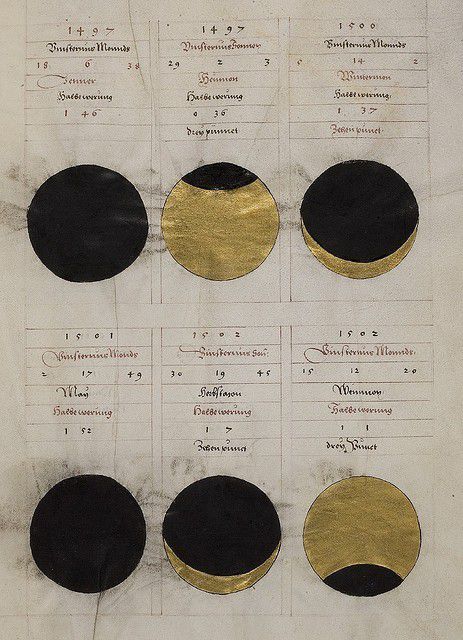 1 4 9 7
Vinsternus Monnds
18 6 38
Jenner
Halbe werung
1 46
1 4 9 7
Vinsternus Sonnen
29 2 3
Hewmon
Halbe werung
0 36
drey punnct
1 5 0 0
Vinsternus Monnds
14 2
Wintermon
Halbe werung
1 37
Zehen punct
1 5 0 1
Vinsternus Monds
2 17 49
May
Halbe werung
1 52
1 5 0 2
Vinsternus
30 19 45
Herbstmon
Halbe werung
1 7
Zehen punct
1 5 0 2
Vinsternus Monnds
15 12 20
Halbe werung
1 1
drey Punct